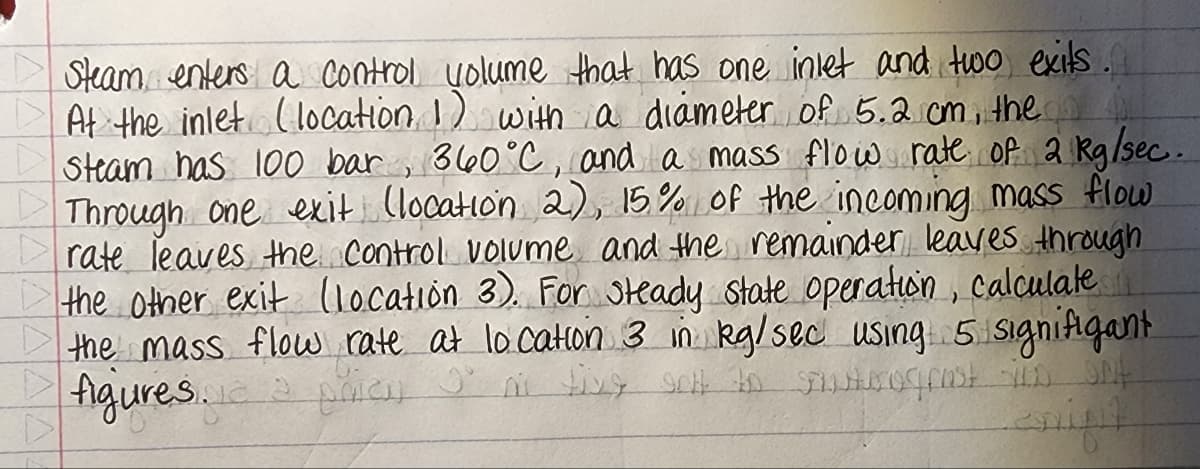 Steam enters a control volume that has one inlet and two exits.
At the inlet (location 1) with a diameter of 5.2 cm, the
steam has 100 bar, 360°C, and a mass flow rate of 2 kg/sec.
Through one exit (location 2), 15% of the incoming mass flow
rate leaves the control volume and the remainder leaves through
the other exit (location 3). For steady state operation, calculate
the mass flow rate at location 3 in kg/sec using 5 signifigant
figures.